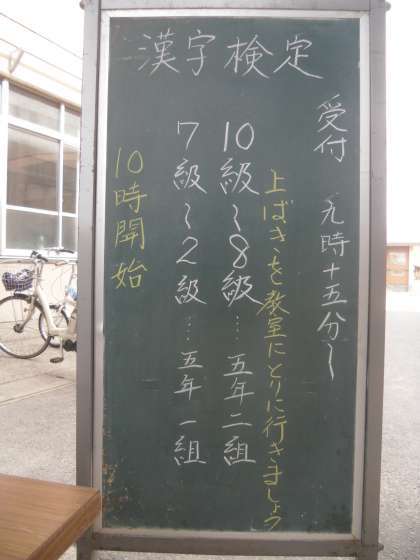 漢字検定
受付 九時十五分～
上ばきを教室にとりに行きましょう
10級～8級…五年二組
7級～2級…五年一組
10時開始